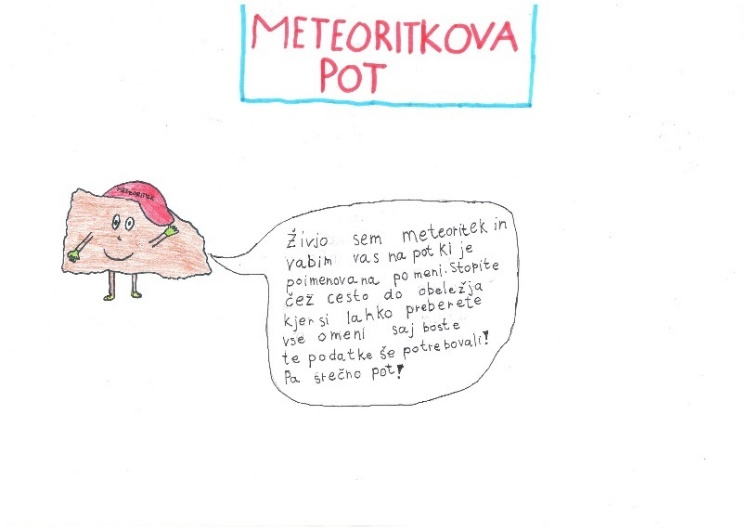 METEORITKOVA
POT
METEORITEK
Živjo sem meteoritek in
vabim vas na pot ki je
poimenovana po meni. Stopite
čež cesto do obeležja
kjer si lahko preberete
vse o meni saj boste
te podatke še potrebovali!
Pa srečno pot!